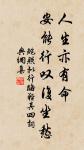 人生亦有命
安能行叹复坐愁
鲍照拟行路难其四词
典桐集